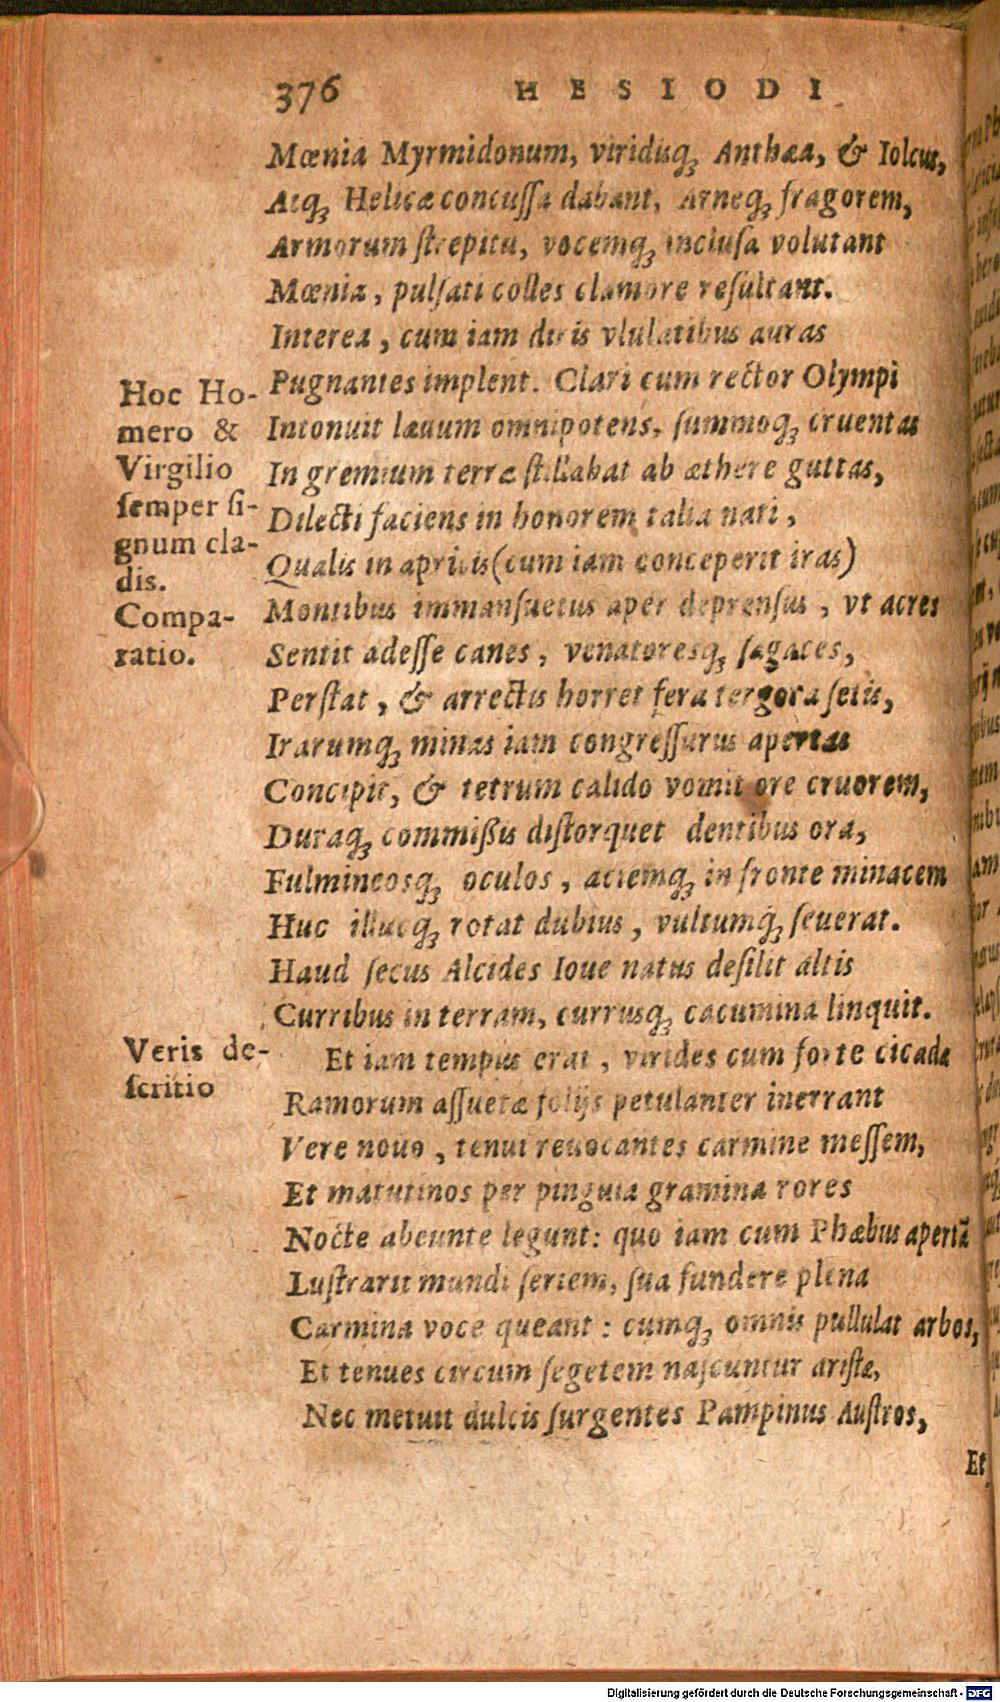 376 HESIODI
Mœnia Myrmidonum, viridisq́ꝫ Anthæa, & Iolcus,
Atqꝫ Helicæ concussa dabant, Arneqꝫ fragorem,
Armorum strepitu, vocemqꝫ inclusa volutant
Mœnia, pulsati colles clamore resultant.
Interea, cum iam diris vlulatibus auras
Pugnantes implent. Clari cum rector Olympi
Intonuit læuum omnipotens, summoqꝫ cruentas
In gremium terræ stillabat ab æthere guttas,
Dilecti faciens in honorem talia nati,
Qualis in apricis (cum iam conceperit iras)
Montibus immansuetus aper deprensus, vt acres
Sentit adesse canes, venatoresqꝫ sagaces,
Perstat, & arrectis horret fera tergora setis,
Irarumqꝫ minas iam congressurus apertas
Concipit, & tetrum calido vomit ore cruorem,
Duraqꝫ commißis distorquet dentibus ora,
Fulmineosqꝫ oculos, aciemqꝫ in fronte minacem
Huc illucqꝫ rotat dubius, vultumq́ꝫ seuerat.
Haud secus Alcides Ioue natus desilit altis
Curribus in terram, currusqꝫ cacumina linquit.
Et iam tempus erat, virides cum forte cicadæ
Ramorum assuetæ folijs petulanter inerrant
Vere nouo, tenui reuocantes carmine messem,
Et matutinos per pinguia gramina rores
Nocte abeunte legunt: quo iam cum Phæbus apertã
Lustrarit mundi seriem, sua fundere plena
Carmina voce queant: cumqꝫ omnis pullulat arbos,
Et tenues circum segetem nascuntur aristæ,
Nec metuit dulcis surgentes Pampinus Austros,
Et
Hoc Ho-
mero &
Virgilio
semper si-
gnum cla-
dis.
Compa-
ratio.
Veris de-
scritio
Digitalisierung gefördert durch die Deutsche Forschungsgemeinschaft - DFG